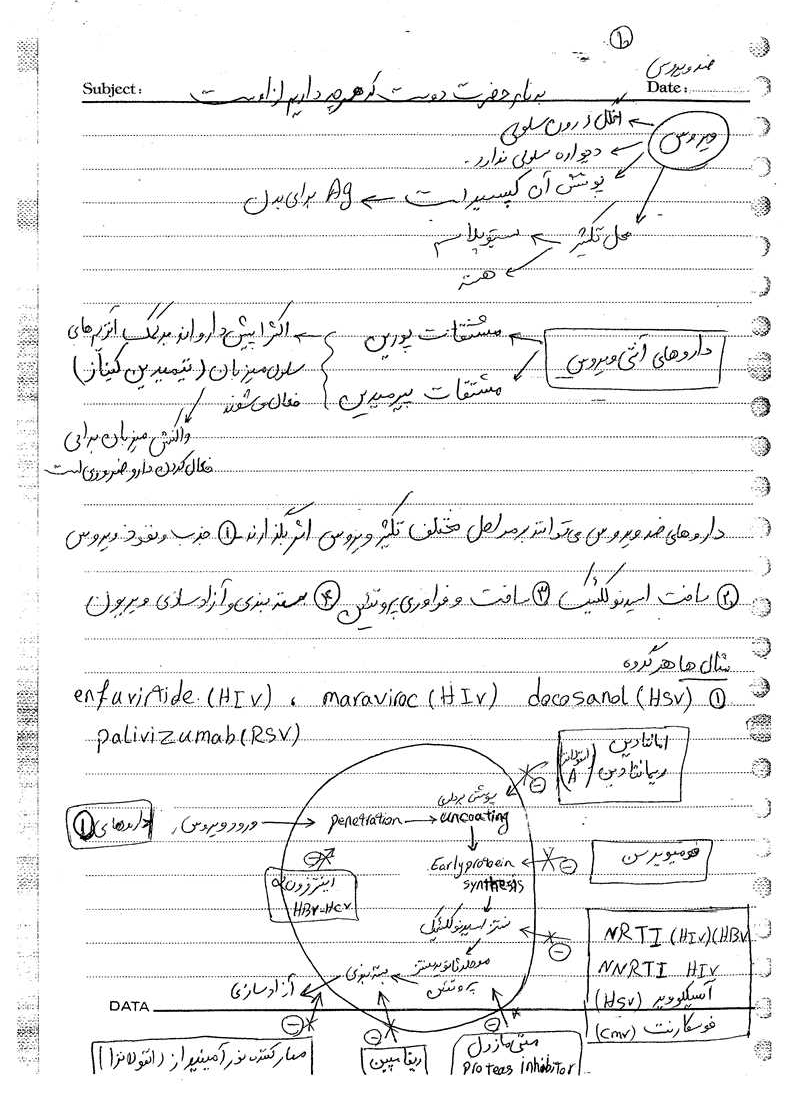 ۱
ضد ویروسی
Subject:
به نام حضرت دوست که هرچه داریم از اوست
Date:
ویروس
انگل درون سلولی
دیواره سلولی ندارد.
پوشش آن کپسید است ← Ag برای بدن
محل تکثیر ← سیتوپلاسم
هسته
داروهای آنتی ویروس
مشتقات پورین
مشتقات پیرمیدین
اکثرا پیش دارو اند به کمک آنزیم های
سلول میزبان (تیمیدین کیناز)
فعال می شوند
واکنش میزبان برای
فعال کردن دارو ضروری است
داروهای ضد ویروس می توانند بر مراحل مختلف تکثیر ویروس اثر بگذارند ① جذب و نفوذ ویروس
② ساخت اسید نوکلئیک ③ ساخت و فرآوری پروتئین ④ بسته بندی و آزاد سازی ویریون
مثال ها هر گروه
① enfuvirtide (HIV) ، maraviroc (HIV) docosanol (HSV)
palivizumab (RSV)
امانتادین
ریمانتادین (آنفولانزا A)
داروهای ①
ورود ویروس → penetration → uncoating
پوشش برداری
فومیویرسن
Early protein
synthesis
اینترفرون α
HBV-HCV
سنتز اسید نوکلئیک
NRTI (HIV)(HBV
NNRTI HIV
آسیکلوویر (HSV)
فوسکارنت (CMV)
پروتئین
بسته بندی
آزاد سازی
DATA
مهار کننده نورآمینیداز (آنفولانزا)
ریفامپین
متی مازدل
Proteas inhibitor